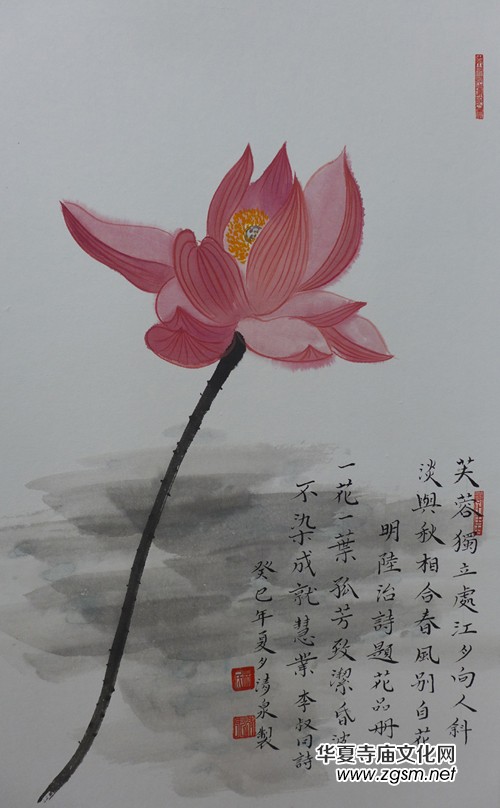 芙蓉獨立處江夕向人斜
淡與秋相合春風別自花
明陸治詩題花品册
一花一葉孤芳致潔昏波
不染成就慧業 李叔同詩
癸巳年夏夕清泉製
华夏寺庙文化网
www.zgsm.net